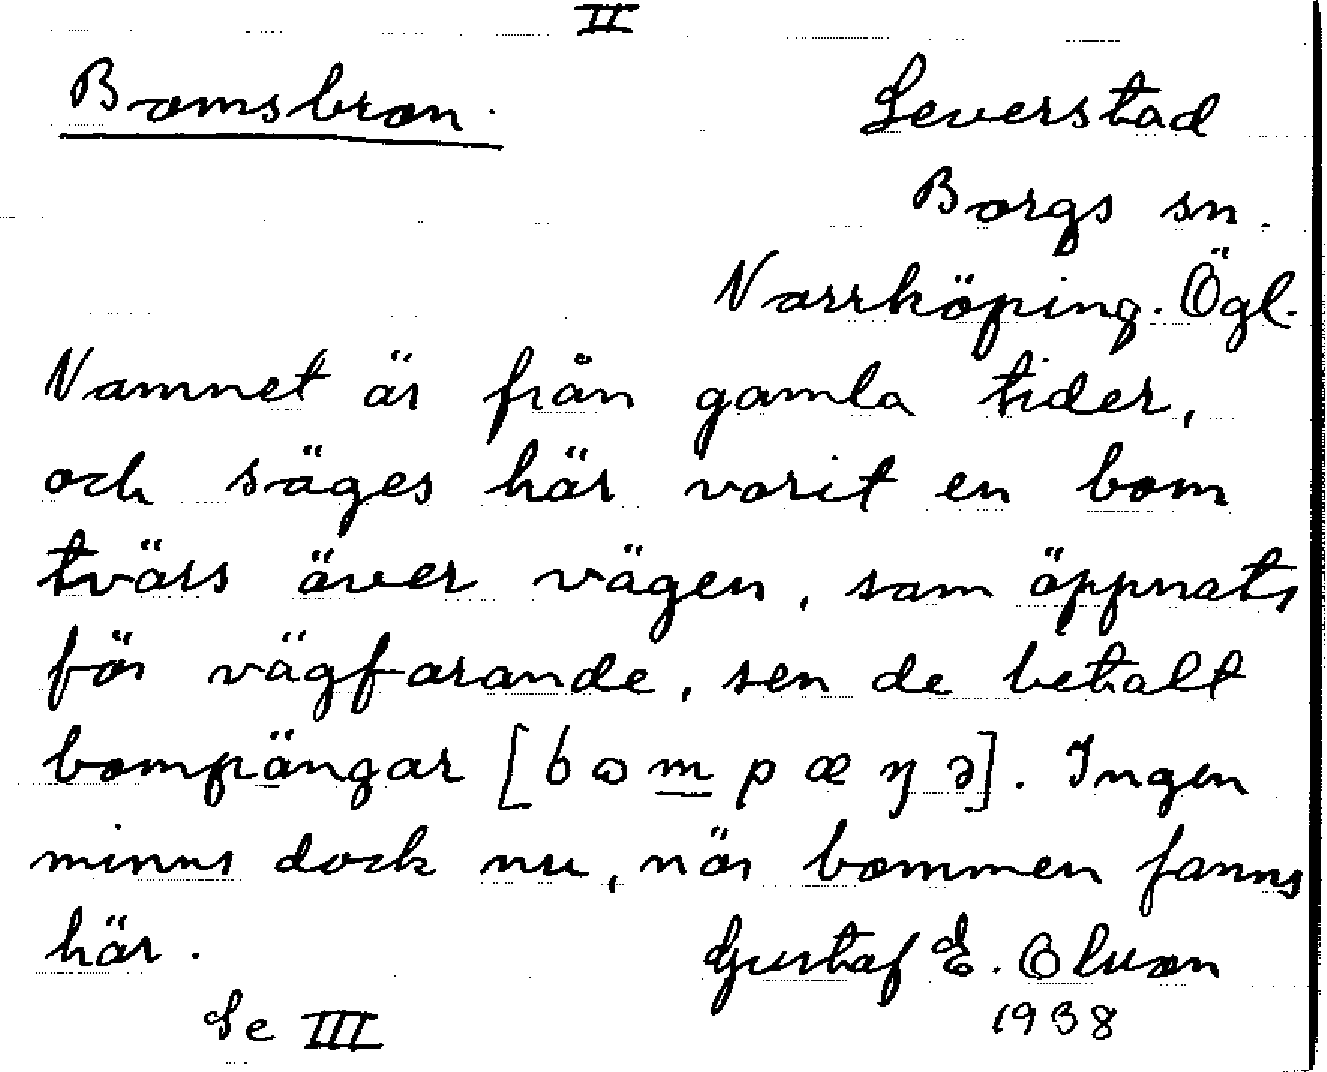 II
Bomsbron.
Leverstad
Borgs sn.
Norrköping. Ögl.
Namnet är från gamla tider,
och säges här varit en bom
tvärs över vägen, som öppnats
för vägfarande, sen de betalt
bompängar [bɷmpæŋə]. Ingen
minns dock nu, när bommen fanns
här.
Gustaf E. Olsson
1938
Se III